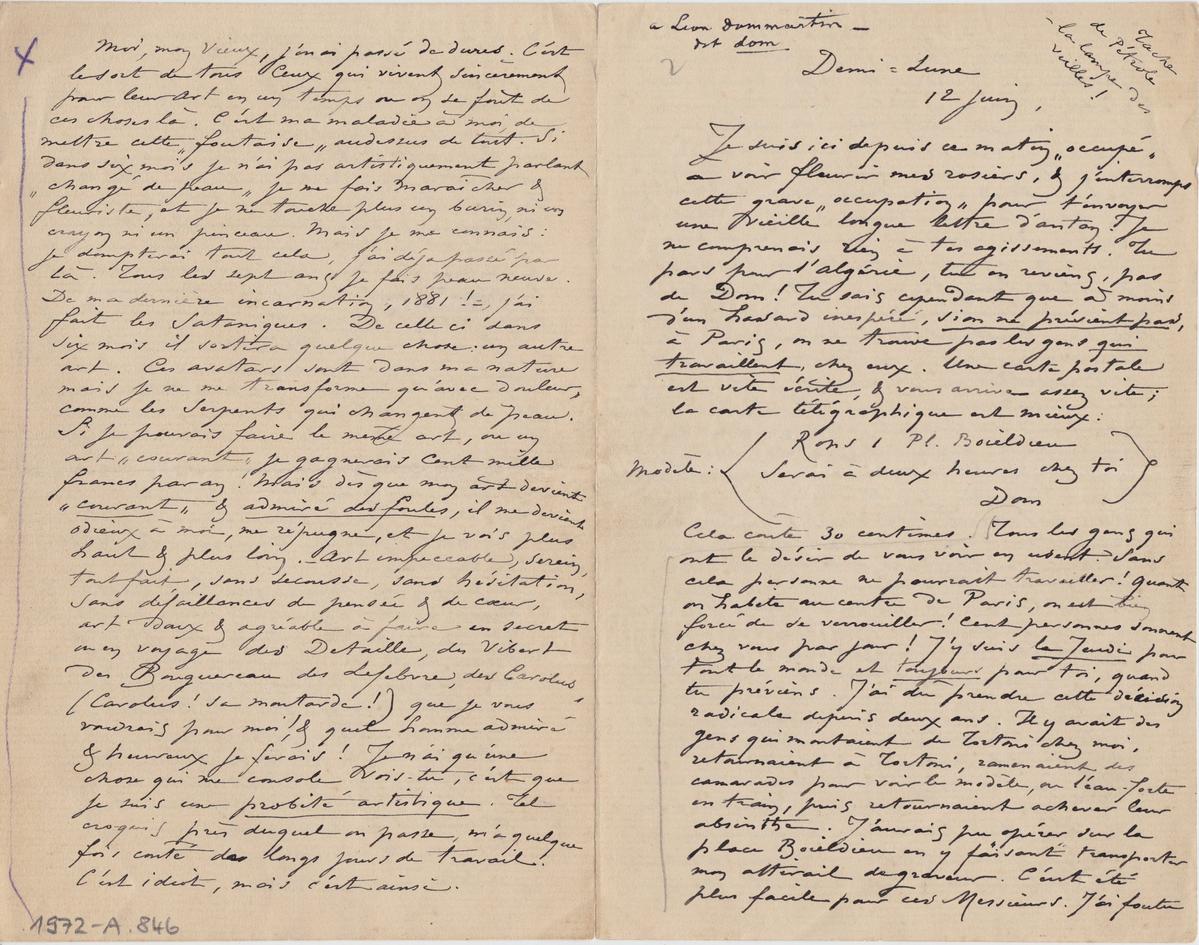 a Léon Dommartin –
dit Dom
2
Tache
de Pétrole
– la lampe des
veilles !
Demi=Lune
12 juin,
Je suis ici depuis ce matin „occupé„
a voir fleurir mes rosiers, & j'interromps
cette grave „occupation„ pour t'envoyer
une vieille longue lettre d'antan ! Je
ne comprenais rien à tes agissements. Tu
pars pour l'Algérie, tu en reviens, pas
de Dom ! Tu sais cependant que à moins
d'un hasard inespéré, si on ne prévient pas,
à Paris, on ne trouve pas les gens qui
travaillent, chez eux. Une carte postale
est vite écrite, & vous arrive assez vite ;
la carte télégraphique est mieux :
Modèle :
Rops 1 Pl. Boieldieu
Serai à deux heures chez toi
Dom
Cela coûte 30 centimes. Tous les gens qui
ont le désir de vous voir en usent. Sans
cela personne ne pourrait travailler ! Quant
on habite au centre de Paris, on est bien
forcé de se verrouiller ! Cent personnes sonnent
chez vous par jour ! J'y suis le Jeudi pour
tout le monde et toujours pour toi, quand
tu préviens. J'ai dû prendre cette décision
radicale depuis deux ans. Il y avait des
gens qui montaient de Tortoni chez moi,
retournaient à Tortoni, ramenaient des
camarades pour voir le modèle, ou l'eau-forte
en train, puis retournaient achever leur
absinthe. J'aurais pu opérer sur la
place Boieldieu en y faisant transporter
mon attirail de graveur. C'eut été
plus facile pour ces Messieurs. J'ai foutu
Moi, mon vieux, j'en ai passé de dures. C'est
le sort de tous ceux qui vivent sincèrement
pour leur art en un temps ou on se fout de
ces choses là. C'est ma maladie à moi de
mettre cette „foutaise„ audessus de tout. Si
dans six mois je n'ai pas artistiquement parlant
„changé de peau„ je me fais maraîcher &
fleuriste, et je ne touche plus un burin, ni un
crayon ni un pinceau. Mais je me connais :
je dompterai tout cela, j'ai déja passé par
là. Tous les sept ans je fais peau neuve.
De ma dernière incarnation, 1881 ! =, j'ai
fait les Sataniques. De celle ci dans
six mois il sortira quelque chose : un autre
art. Ces avatars sont dans ma nature
mais je ne me transforme qu'avec douleur,
comme les serpents qui changent de peau.
Si je pouvais faire le même art, ou un
art „courant„ je gagnerais cent mille
francs par an ! Mais dès que mon art devient
„courant„ & admiré des foules, il me devient
odieux à moi, me répugne, et je vois plus
haut & plus loin. – Art impeccable, serein,
tout fait, sans secousse, sans hésitation,
sans défaillances de pensée & de cœur,
art doux & agréable à faire en secret
ou en voyage des Detaille, des Vibert
des Bouguereau des Lefebvre, des Carolus –
(Carolus ! sa moutarde !) que je vous
voudrais pour moi ! & quel homme admiré
& heureux je ferais ! Je n'ai qu'une
chose qui me console vois-tu, c'est que
je suis une probité artistique. Tel
croquis près duquel on passe, m'a quelque
fois conté des longs jours de travail.
C'est idiot, mais c'est ainsi.
1972-A.846